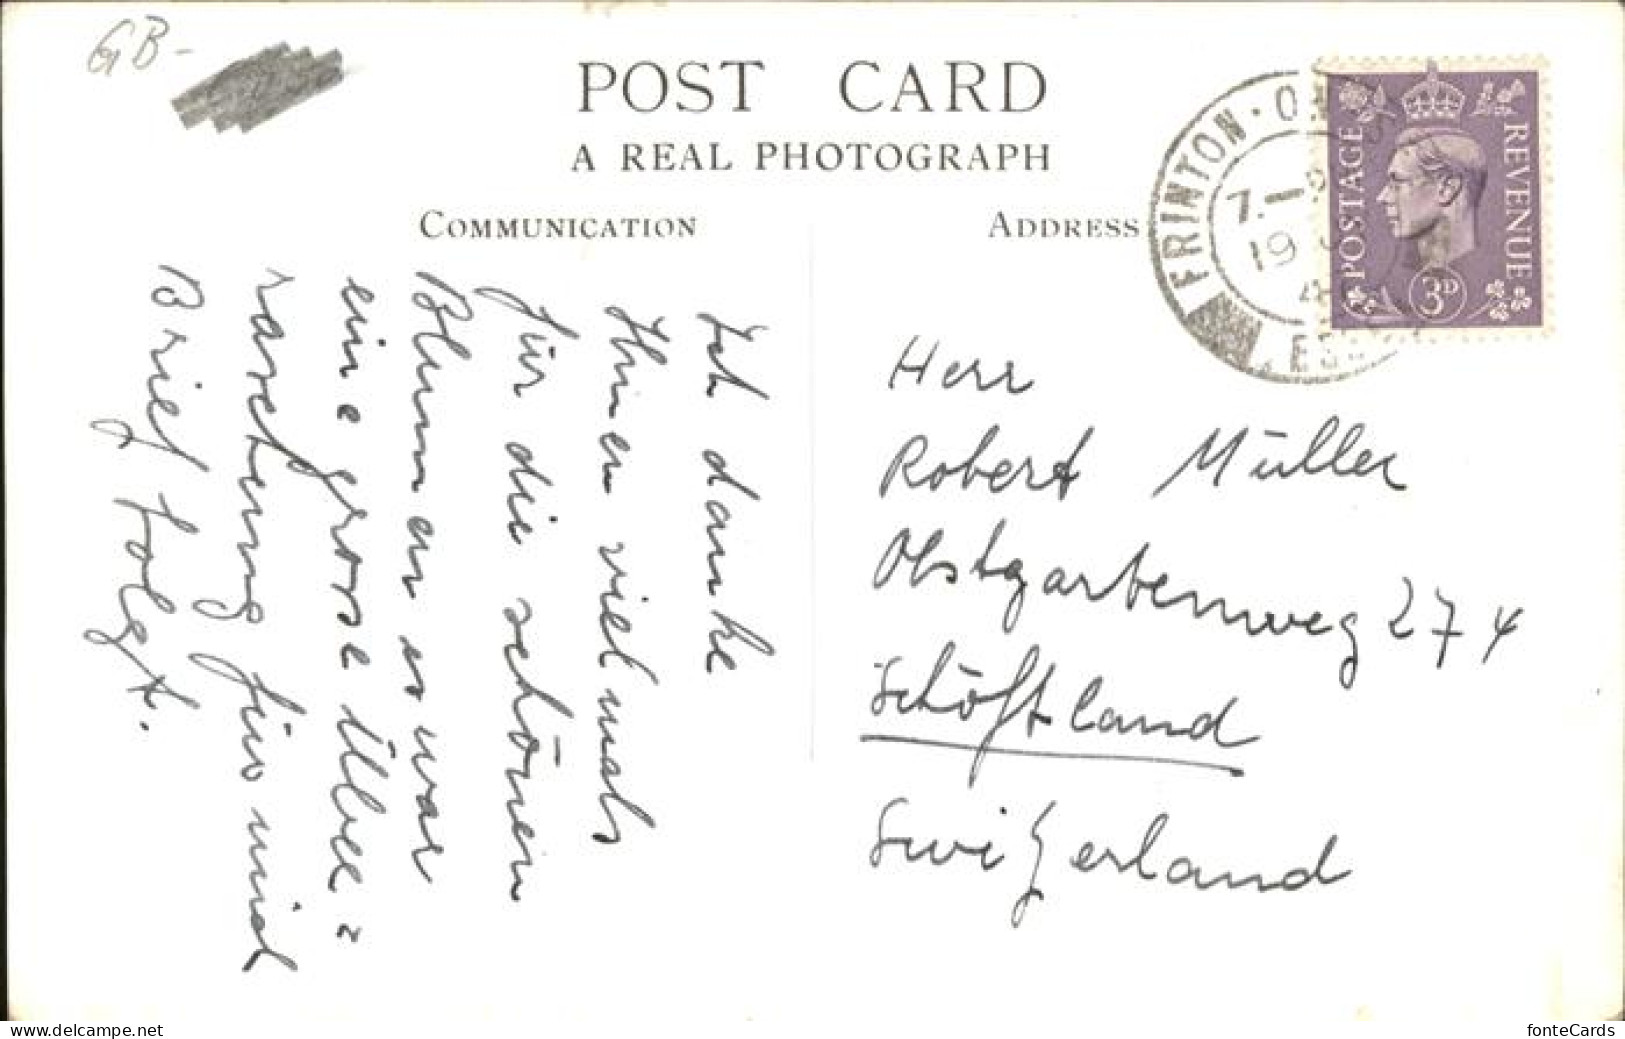 GB-
POST CARD
A REAL PHOTOGRAPH
COMMUNICATION
ADDRESS
FRINTON · ON
7-
19
POSTAGE
REVENUE
3D
Ich danke
Ihnen vielmals
für die schönen
Blumen es war
eine grosse Über=
raschung für mich
Brief folgt.
Herr
Robert Müller
Obstgartenweg 274
Schöftland
Switzerland
www.delcampe.net
fonteCards